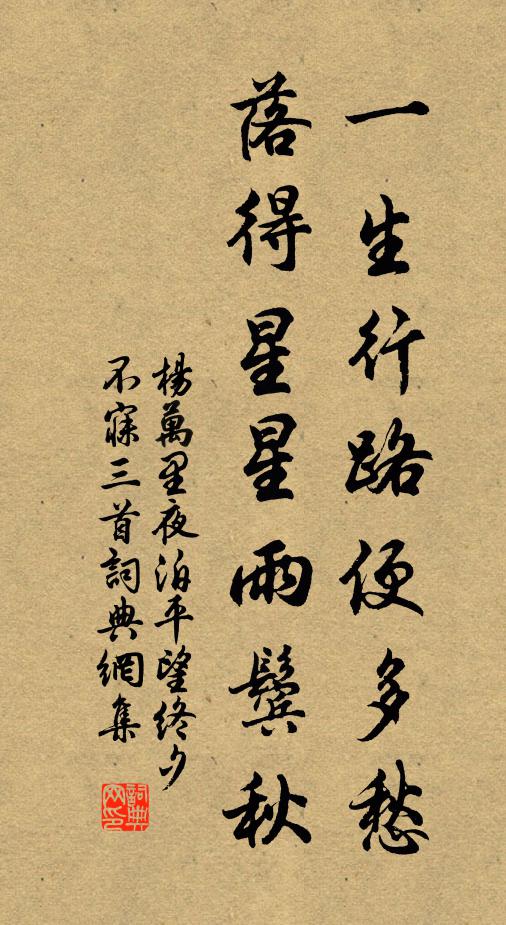 一生行路便多愁
落得星星兩鬢秋
楊萬里夜泊平望終夕
不寐三首詞典網集
詞典
网印